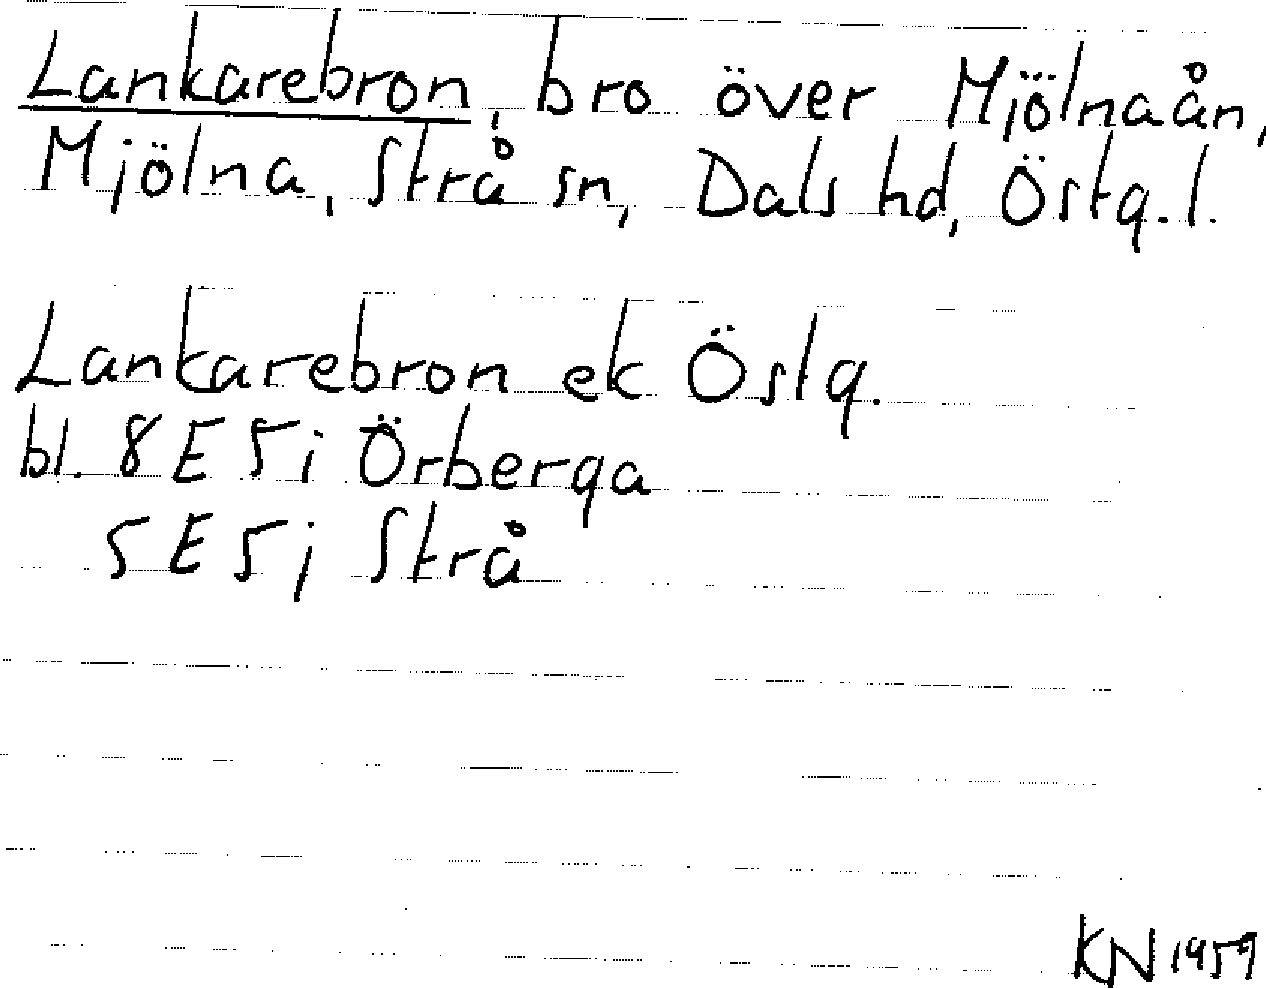 Lankarebron, bro över Mjölnaån,
Mjölna, Strå sn, Dals hd, Östg. l.
Lankarebron ek Östg.
bl. 8 E 5 i Örberga
5 E 5 j Strå
KN 1959